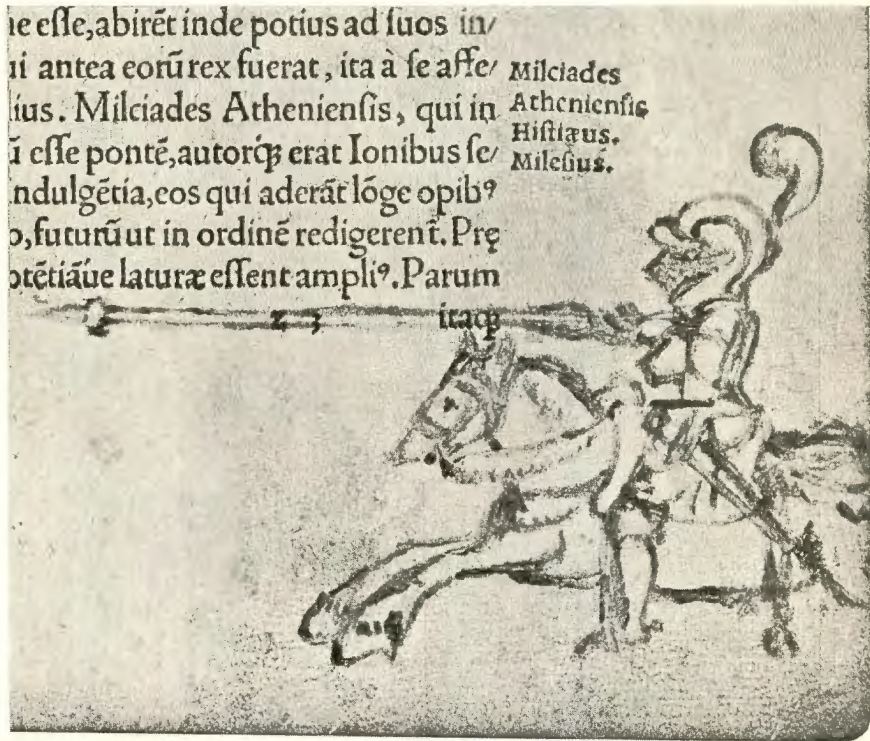 ne eſſe,abirẽt inde potius ad ſuos in/
ui antea eorũ rex fuerat, ita à ſe affe/
lius. Milciades Athenienſis, qui in
ũ eſſe pontẽ,autorq́ꝫ erat Ionibus ſe/
ndulgẽtia,eos qui aderãt lõge opibꝰ
o,futurũ ut in ordinẽ redigerent̃. Prę
otẽtiãue laturæ eſſent ampliꝰ. Parum
z 3 itaqꝫ
Milciades
Athenienſis
Hiſtiæus.
Mileſius.